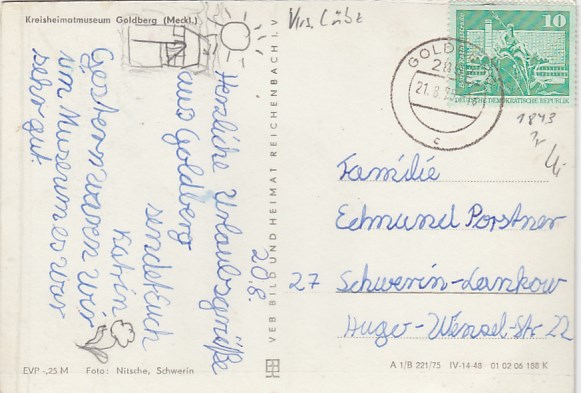 Kreisheimatmuseum Goldberg (Meckl.)
20.8.
Herzliche Urlaubsgrüße
aus Goldberg
sendet Euch
Katrin
Gestern waren wir
im Museum es war
sehr gut.
EVP -,25 M Foto: Nitsche, Schwerin
VEB BILD UND HEIMAT REICHENBACH I. V
Krs. Lübz
GOLDBERG
21.8.
c
10
DEUTSCHE DEMOKRATISCHE REPUBLIK
1843
Familie
Edmund Porstner
27 Schwerin-Lankow
Hugo-Wenzel-Str. 22
A 1/B 221/75 IV-14-48 01 02 06 188 K